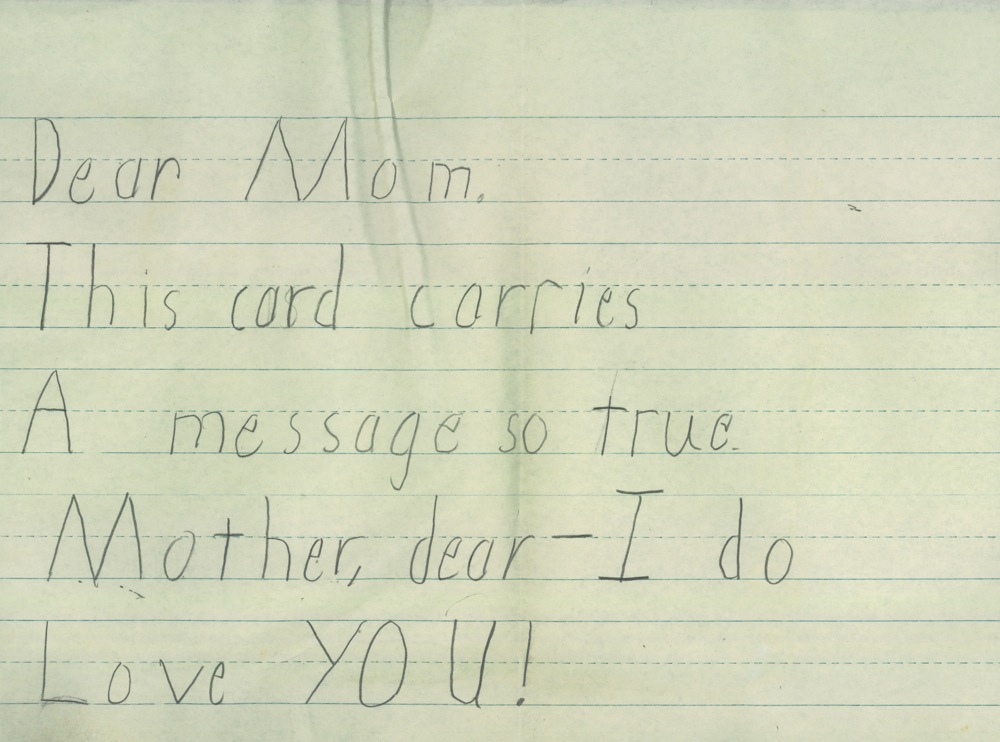 Dear Mom.
This card carries
A message so true.
Mother, dear—I do
Love YOU!